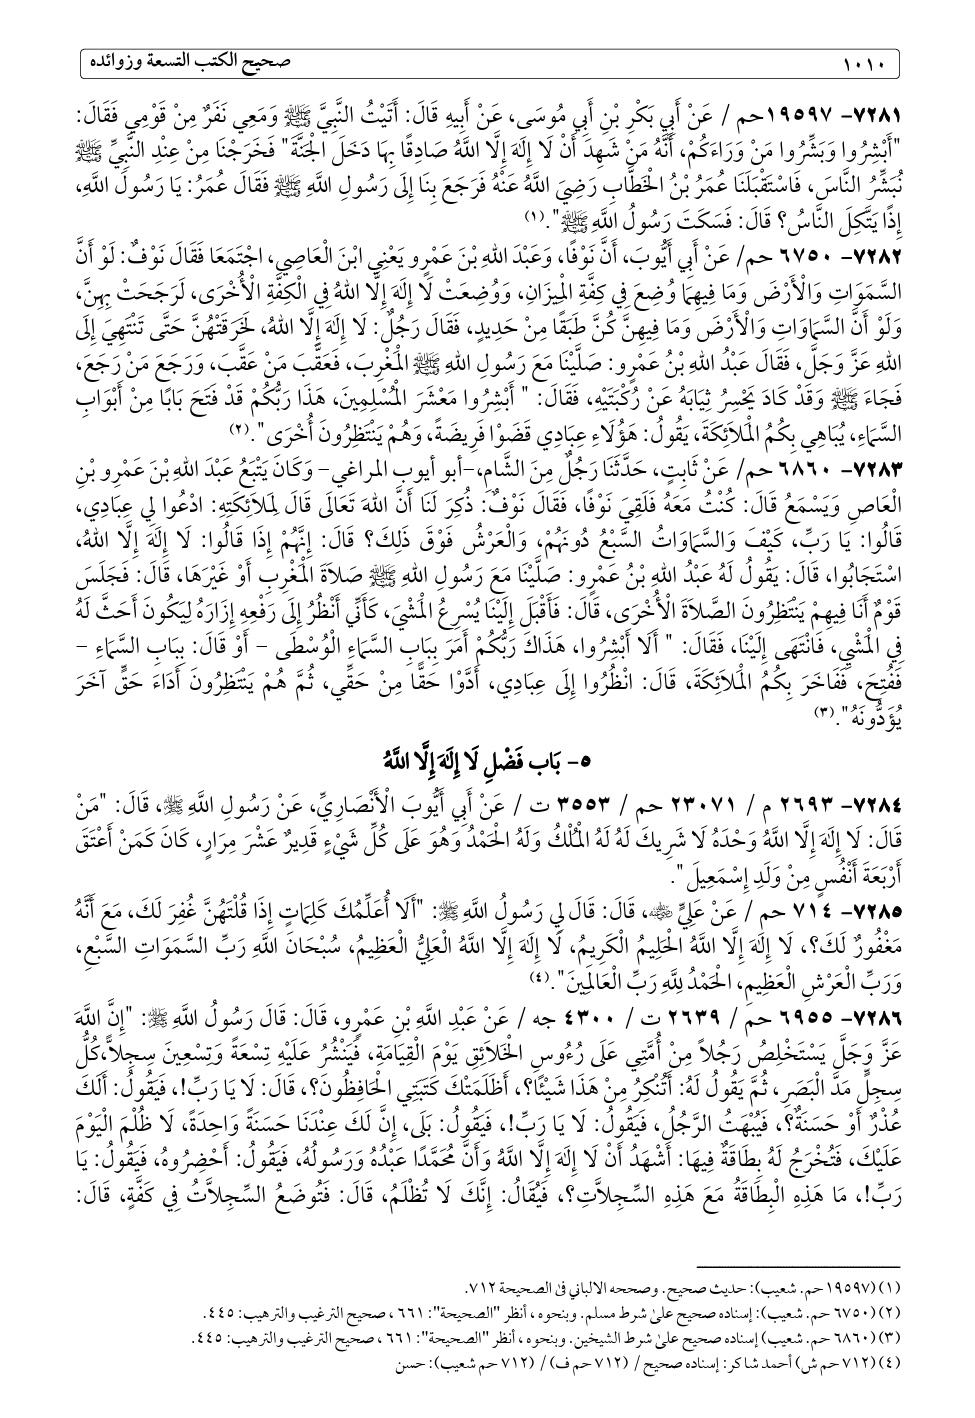 ١٠١٠ صحيح الكتب التسعة وزوائده
٧٢٨١- ١٩٥٩٧حم / عَنْ أَبِي بَكْرِ بْنِ أَبِي مُوسَى، عَنْ أَبِيهِ قَالَ: أَتَيْتُ النَّبِيَّ ﷺ وَمَعِي نَفَرٌ مِنْ قَوْمِي فَقَالَ:
"أَبْشِرُوا وَبَشِّرُوا مَنْ وَرَاءَكُمْ، أَنَّهُ مَنْ شَهِدَ أَنْ لَا إِلَهَ إِلَّا اللَّهُ صَادِقًا بِهَا دَخَلَ الْجَنَّةَ" فَخَرَجْنَا مِنْ عِنْدِ النَّبِيِّ ﷺ
نُبَشِّرُ النَّاسَ، فَاسْتَقْبَلَنَا عُمَرُ بْنُ الْخَطَّابِ رَضِيَ اللَّهُ عَنْهُ فَرَجَعَ بِنَا إِلَى رَسُولِ اللَّهِ ﷺ فَقَالَ عُمَرُ: يَا رَسُولَ اللَّهِ،
إِذًا يَتَّكِلَ النَّاسُ؟ قَالَ: فَسَكَتَ رَسُولُ اللَّهِ ﷺ".(١)
٧٢٨٢- ٦٧٥٠ حم/ عَنْ أَبِي أَيُّوبَ، أَنَّ نَوْفًا، وَعَبْدَ اللهِ بْنَ عَمْرٍو يَعْنِي ابْنَ الْعَاصِي، اجْتَمَعَا فَقَالَ نَوْفٌ: لَوْ أَنَّ
السَّمَوَاتِ وَالْأَرْضَ وَمَا فِيهِمَا وُضِعَ فِي كِفَّةِ الْمِيزَانِ، وَوُضِعَتْ لَا إِلَهَ إِلَّا اللهُ فِي الْكِفَّةِ الْأُخْرَى، لَرَجَحَتْ بِهِنَّ،
وَلَوْ أَنَّ السَّمَاوَاتِ وَالْأَرْضَ وَمَا فِيهِنَّ كُنَّ طَبَقًا مِنْ حَدِيدٍ، فَقَالَ رَجُلٌ: لَا إِلَهَ إِلَّا اللهُ، لَخَرَقَتْهُنَّ حَتَّى تَنْتَهِيَ إِلَى
اللهِ عَزَّ وَجَلَّ، فَقَالَ عَبْدُ اللهِ بْنُ عَمْرٍو: صَلَّيْنَا مَعَ رَسُولِ اللهِ ﷺ الْمَغْرِبَ، فَعَقَّبَ مَنْ عَقَّبَ، وَرَجَعَ مَنْ رَجَعَ،
فَجَاءَ ﷺ وَقَدْ كَادَ يَحْسِرُ ثِيَابَهُ عَنْ رُكْبَتَيْهِ، فَقَالَ: " أَبْشِرُوا مَعْشَرَ الْمُسْلِمِينَ، هَذَا رَبُّكُمْ قَدْ فَتَحَ بَابًا مِنْ أَبْوَابِ
السَّمَاءِ، يُبَاهِي بِكُمُ الْمَلَائِكَةَ، يَقُولُ: هَؤُلَاءِ عِبَادِي قَضَوْا فَرِيضَةً، وَهُمْ يَنْتَظِرُونَ أُخْرَى".(٢)
٧٢٨٣- ٦٨٦٠ حم/ عَنْ ثَابِتٍ، حَدَّثَنَا رَجُلٌ مِنَ الشَّامِ،-أبو أيوب المراغي- وَكَانَ يَتْبَعُ عَبْدَ اللهِ بْنَ عَمْرِو بْنِ
الْعَاصِ وَيَسْمَعُ قَالَ: كُنْتُ مَعَهُ فَلَقِيَ نَوْفًا، فَقَالَ نَوْفٌ: ذُكِرَ لَنَا أَنَّ اللهَ تَعَالَى قَالَ لِمَلَائِكَتِهِ: ادْعُوا لِي عِبَادِي،
قَالُوا: يَا رَبِّ، كَيْفَ وَالسَّمَاوَاتُ السَّبْعُ دُونَهُمْ، وَالْعَرْشُ فَوْقَ ذَلِكَ؟ قَالَ: إِنَّهُمْ إِذَا قَالُوا: لَا إِلَهَ إِلَّا اللهُ،
اسْتَجَابُوا، قَالَ: يَقُولُ لَهُ عَبْدُ اللهِ بْنُ عَمْرٍو: صَلَّيْنَا مَعَ رَسُولِ اللهِ ﷺ صَلَاةَ الْمَغْرِبِ أَوْ غَيْرَهَا، قَالَ: فَجَلَسَ
قَوْمٌ أَنَا فِيهِمْ يَنْتَظِرُونَ الصَّلَاةَ الْأُخْرَى، قَالَ: فَأَقْبَلَ إِلَيْنَا يُسْرِعُ الْمَشْيَ، كَأَنِّي أَنْظُرُ إِلَى رَفْعِهِ إِزَارَهُ لِيَكُونَ أَحَثَّ لَهُ
فِي الْمَشْيِ، فَانْتَهَى إِلَيْنَا، فَقَالَ: " أَلَا أَبْشِرُوا، هَذَاكَ رَبُّكُمْ أَمَرَ بِبَابِ السَّمَاءِ الْوُسْطَى - أَوْ قَالَ: بِبَابِ السَّمَاءِ -
فَفُتِحَ، فَفَاخَرَ بِكُمُ الْمَلَائِكَةَ، قَالَ: انْظُرُوا إِلَى عِبَادِي، أَدَّوْا حَقًّا مِنْ حَقِّي، ثُمَّ هُمْ يَنْتَظِرُونَ أَدَاءَ حَقٍّ آخَرَ
يُؤَدُّونَهُ".(٣)
٥- بَاب فَضْلِ لَا إِلَهَ إِلَّا اللَّهُ
٧٢٨٤- ٢٦٩٣ م / ٢٣٠٧١ حم / ٣٥٥٣ ت / عَنْ أَبِي أَيُّوبَ الْأَنْصَارِيِّ، عَنْ رَسُولِ اللَّهِ ﷺ، قَالَ: "مَنْ
قَالَ: لَا إِلَهَ إِلَّا اللَّهُ وَحْدَهُ لَا شَرِيكَ لَهُ لَهُ الْمُلْكُ وَلَهُ الْحَمْدُ وَهُوَ عَلَى كُلِّ شَيْءٍ قَدِيرٌ عَشْرَ مِرَارٍ، كَانَ كَمَنْ أَعْتَقَ
أَرْبَعَةَ أَنْفُسٍ مِنْ وَلَدِ إِسْمَعِيلَ".
٧٢٨٥- ٧١٤ حم / عَنْ عَلِيٍّ ﵁، قَالَ: قَالَ لِي رَسُولُ اللَّهِ ﷺ: "أَلَا أُعَلِّمُكَ كَلِمَاتٍ إِذَا قُلْتَهُنَّ غُفِرَ لَكَ، مَعَ أَنَّهُ
مَغْفُورٌ لَكَ؟، لَا إِلَهَ إِلَّا اللَّهُ الْحَلِيمُ الْكَرِيمُ، لَا إِلَهَ إِلَّا اللَّهُ الْعَلِيُّ الْعَظِيمُ، سُبْحَانَ اللَّهِ رَبِّ السَّمَوَاتِ السَّبْعِ،
وَرَبِّ الْعَرْشِ الْعَظِيمِ، الْحَمْدُ لِلَّهِ رَبِّ الْعَالَمِينَ".(٤)
٧٢٨٦- ٦٩٥٥ حم / ٢٦٣٩ ت / ٤٣٠٠ جه / عَنْ عَبْدِ اللَّهِ بْنِ عَمْرٍو، قَالَ: قَالَ رَسُولُ اللَّهِ ﷺ: "إِنَّ اللَّهَ
عَزَّ وَجَلَّ يَسْتَخْلِصُ رَجُلاً مِنْ أُمَّتِي عَلَى رُءُوسِ الْخَلَائِقِ يَوْمَ الْقِيَامَةِ، فَيَنْشُرُ عَلَيْهِ تِسْعَةً وَتِسْعِينَ سِجِلاًّ،كُلُّ
سِجِلٍّ مَدَّ الْبَصَرِ، ثُمَّ يَقُولُ لَهُ: أَتُنْكِرُ مِنْ هَذَا شَيْئًا؟، أَظَلَمَتْكَ كَتَبَتِي الْحَافِظُونَ؟، قَالَ: لَا يَا رَبِّ!، فَيَقُولُ: أَلَكَ
عُذْرٌ أَوْ حَسَنَةٌ؟، فَيُبْهَتُ الرَّجُلُ، فَيَقُولُ: لَا يَا رَبِّ!، فَيَقُولُ: بَلَى، إِنَّ لَكَ عِنْدَنَا حَسَنَةً وَاحِدَةً، لَا ظُلْمَ الْيَوْمَ
عَلَيْكَ، فَتُخْرَجُ لَهُ بِطَاقَةٌ فِيهَا: أَشْهَدُ أَنْ لَا إِلَهَ إِلَّا اللَّهُ وَأَنَّ مُحَمَّدًا عَبْدُهُ وَرَسُولُهُ، فَيَقُولُ: أَحْضِرُوهُ، فَيَقُولُ: يَا
رَبِّ!، مَا هَذِهِ الْبِطَاقَةُ مَعَ هَذِهِ السِّجِلاَّتِ؟، فَيُقَالُ: إِنَّكَ لَا تُظْلَمُ، قَالَ: فَتُوضَعُ السِّجِلاَّتُ فِي كَفَّةٍ، قَالَ:
(١) (١٩٥٩٧ حم. شعيب): حديث صحيح. وصححه الالباني فى الصحيحة ٧١٢.
(٢) (٦٧٥٠ حم. شعيب): إسناده صحيح على شرط مسلم. وبنحوه ، أنظر "الصحيحة": ٦٦١ ، صحيح الترغيب والترهيب: ٤٤٥.
(٣) (٦٨٦٠ حم. شعيب) إسناده صحيح على شرط الشيخين. وبنحوه ، أنظر "الصحيحة": ٦٦١ ، صحيح الترغيب والترهيب: ٤٤٥.
(٤) (٧١٢ حم ش) أحمد شاكر: إسناده صحيح / (٧١٢ حم ف) / (٧١٢ حم شعيب): حسن